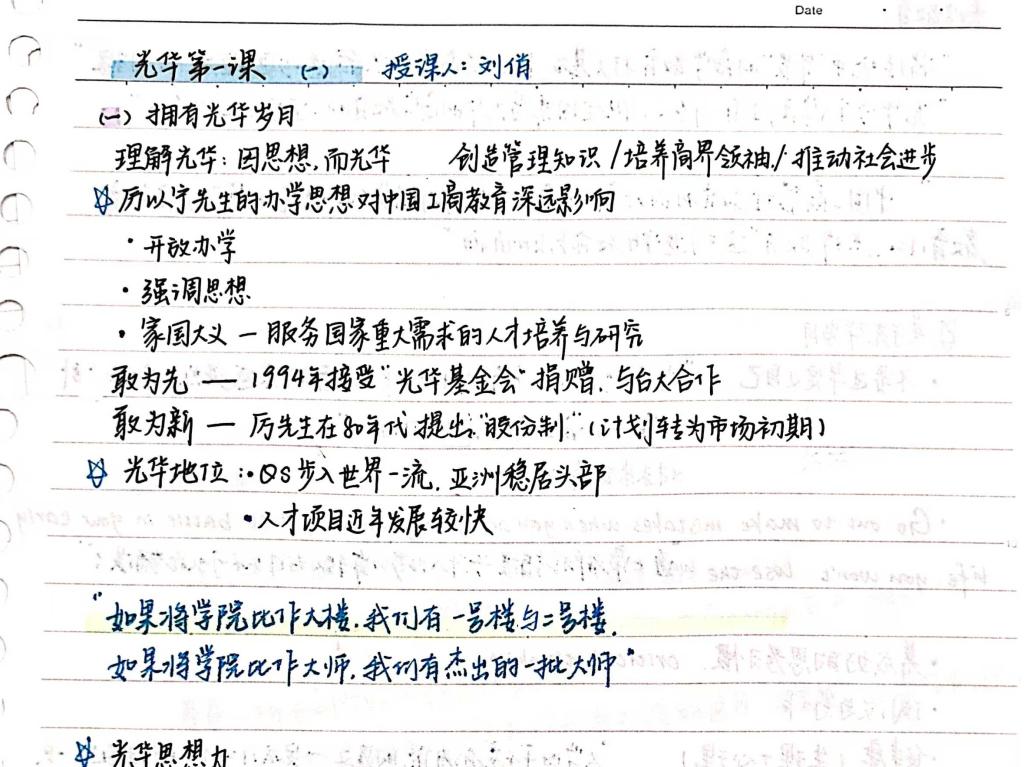 Date
光华第一课 (一) 授课人：刘俏
(一) 拥有光华岁月
理解光华：因思想,而光华 创造管理知识/培养商界领袖/推动社会进步
☆厉以宁先生的办学思想对中国工商教育深远影响
·开放办学
·强调思想
·家国大义 — 服务国家重大需求的人才培养与研究
敢为先 —— 1994年接受"光华基金会"捐赠,与台大合作
敢为新 — 厉先生在80年代提出"股份制"(计划转为市场初期)
☆ 光华地位：·QS步入世界一流,亚洲稳居头部
·人才项目近年发展较快
"如果将学院比作大楼,我们有一号楼与二号楼,
如果将学院比作大师,我们有杰出的一批大师"
☆ 光华思想力